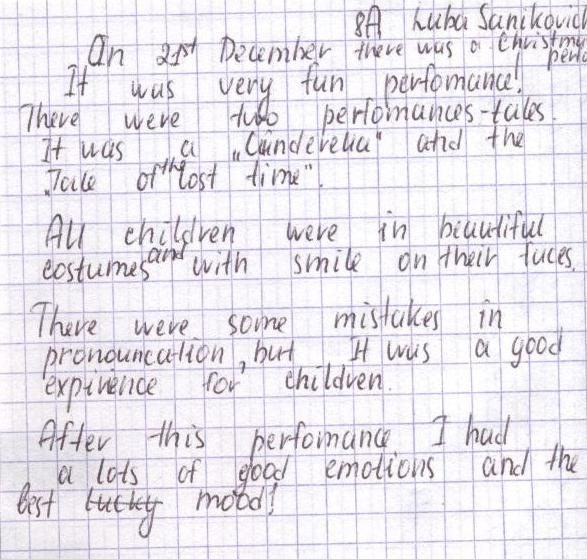 8A Luba Sanikovich
On 21st December there was a Christmas
perfo
It was very fun perfomance!
There were two perfomances-tales.
It was a „Cinderella“ and the
„Tale of the lost time“.
All children were in beautiful
costumes and with smile on their faces.
There were some mistakes in
pronouncation, but it was a good
expirience for children.
After this perfomance I had
a lots of good emotions and the
best lucky mood!